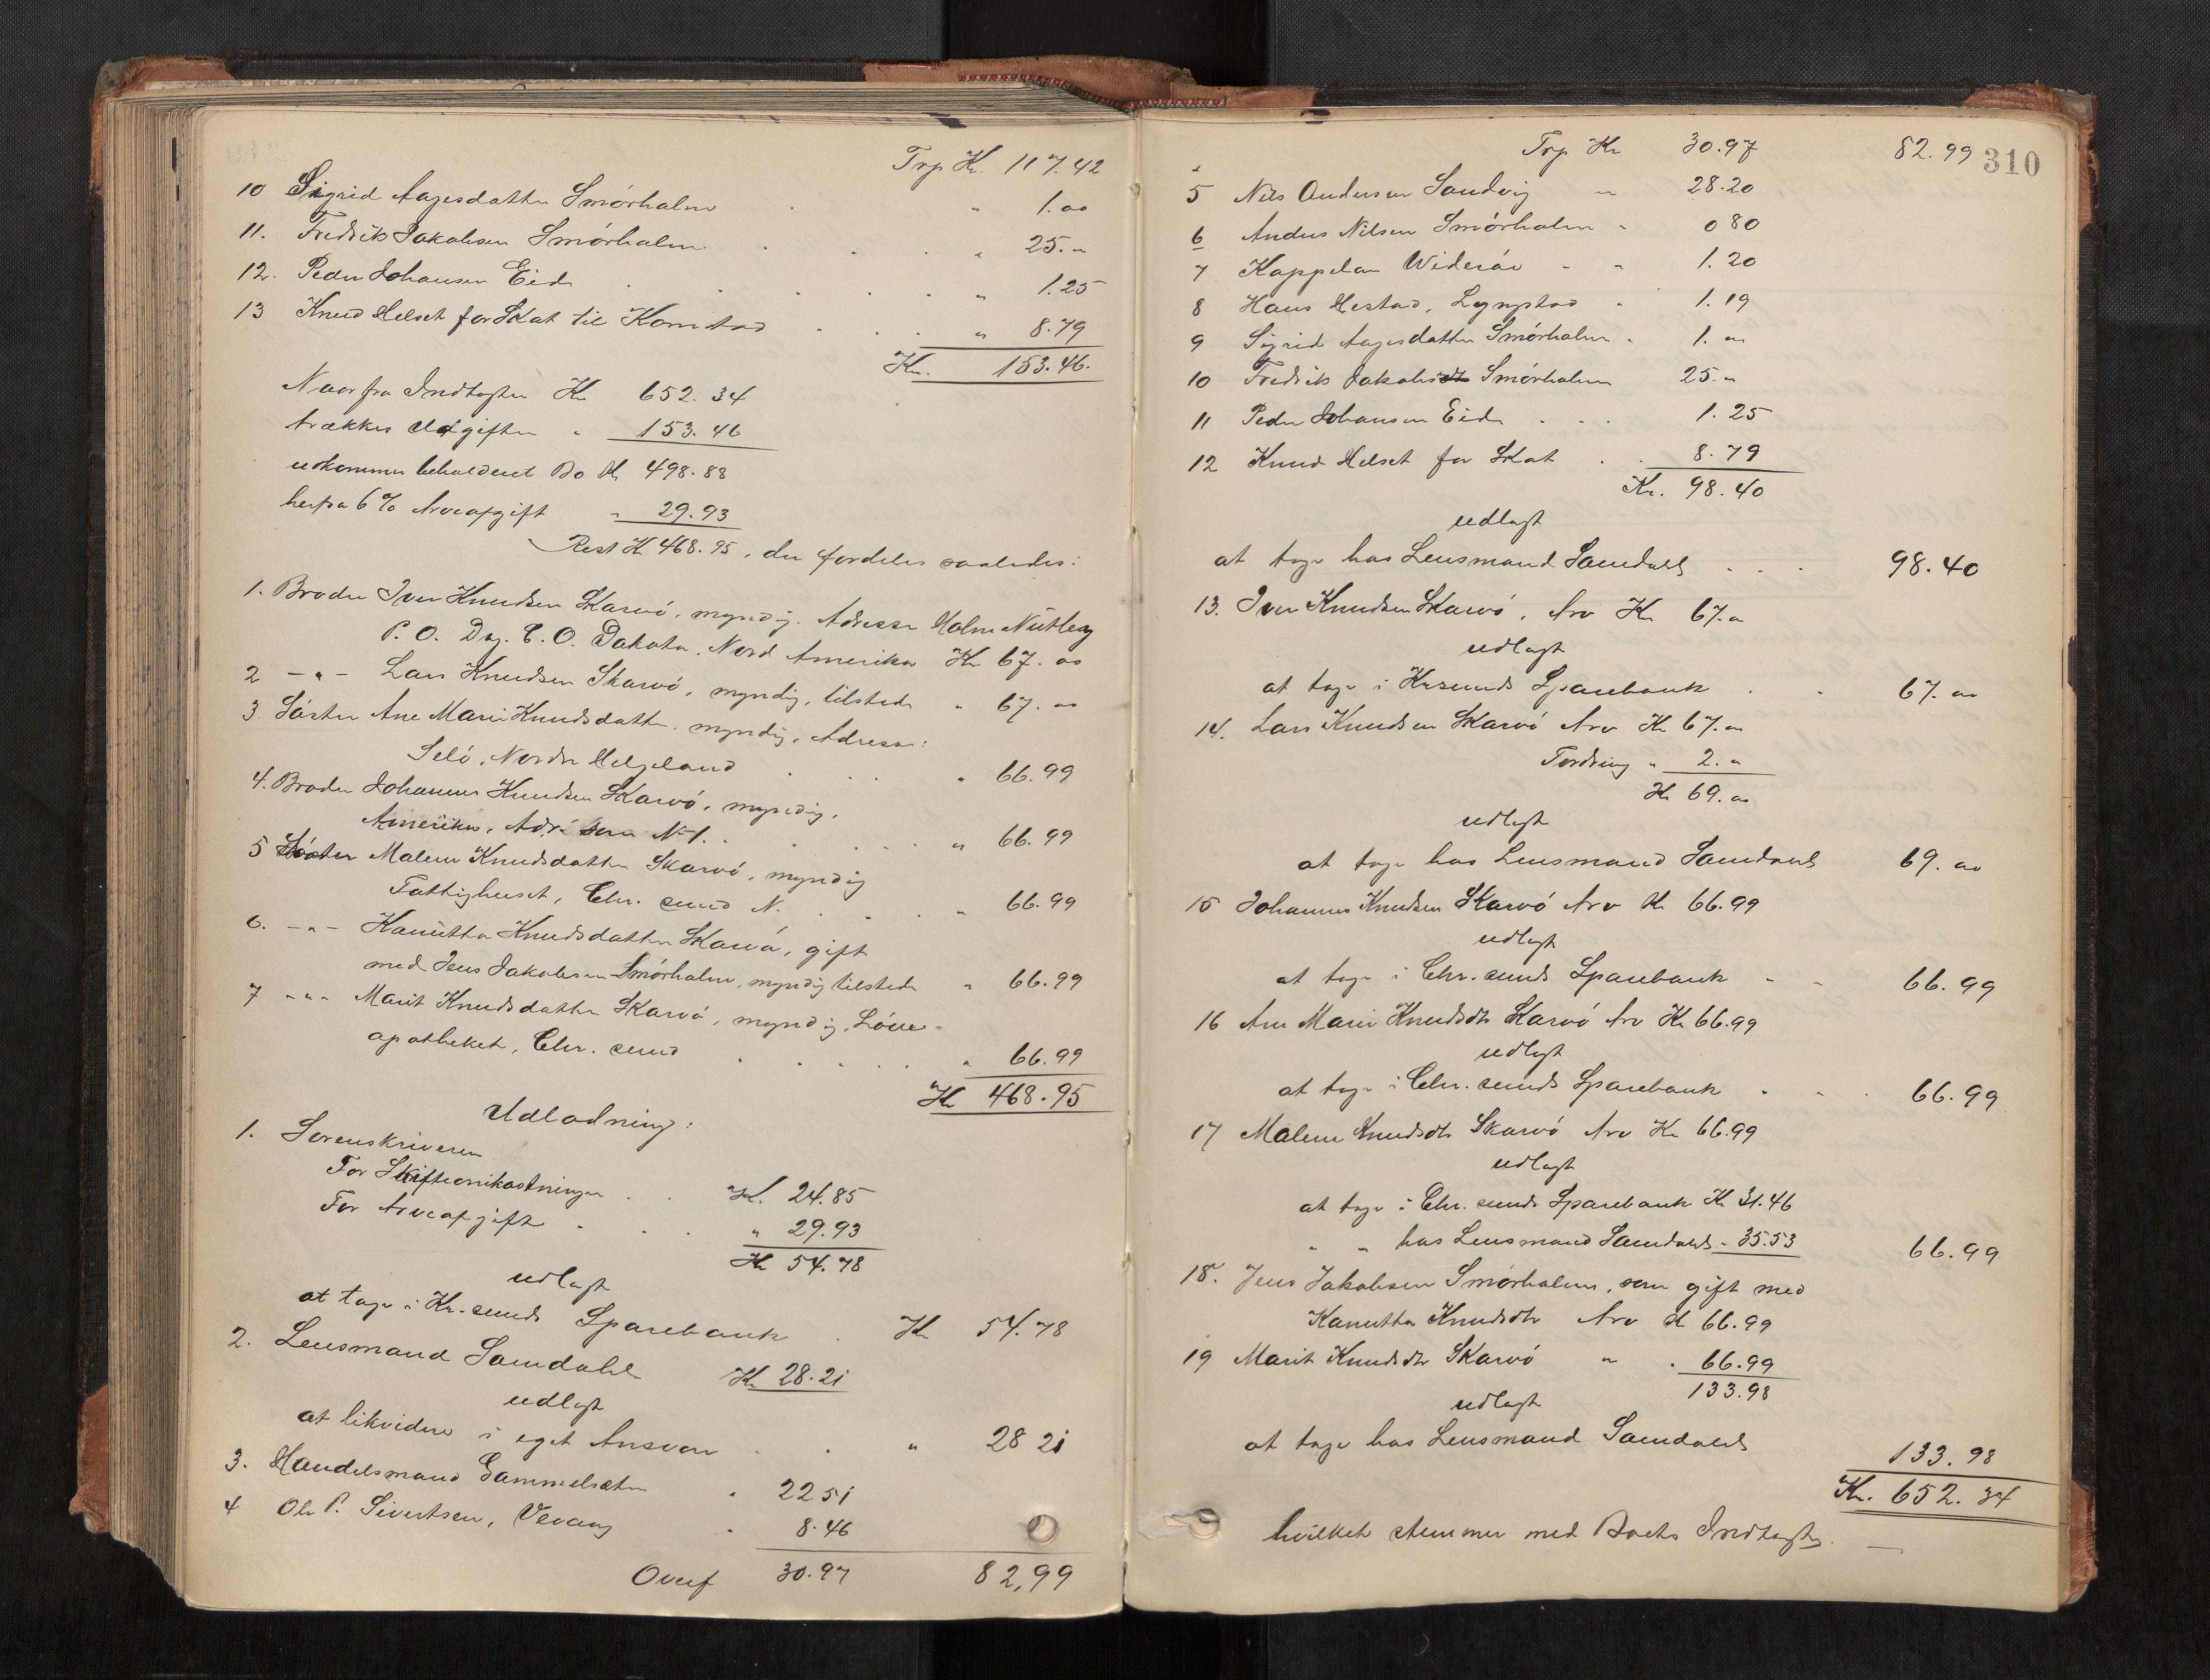 Trp Kr. 117.42
10 Sigrid Aagesdatter Smörholm " 1.00
11. Fredrik Jakobsen Smörholm " 25. "
12. Peder Johansen Eide " 1.25
13 Knud Helset for Skat til Kornstad " 8.79
Kr. 153.46.
Naar fra Indtægten Kr 652.34
trækkes Udgiften " 153.46
udkommer beholdent Bo Kr 498.88
herfra 6% Arveafgift " 29.93
Rest Kr 468.95, der fordeles saaledes:
1. Broder Iver Knudsen Skarvö, myndig. Adresse Holm Nutley
P. O. Day. C. O. Dakota. Nord Amerika Kr 67.00
2 - " - Lars Knudsen Skarvö, myndig, tilstede " 67.00
3 Söster Ane Marie Knudsdatter, myndig, Adresse:
Selö, Nordre Helgeland " 66.99
4. Broder Johannes Knudsen Skarvö, myndig,
Amerika, Adr. som No 1. " 66.99
5 Söster Malene Knudsdatter Skarvö, myndig
Fattighuset, Chr.sund N. " 66.99
6. - " - Kanutta Knudsdatter Skarvö, gift
med Jens Jakobsen Smörholm, myndig tilstede " 66.99
7 - " - Marit Knudsdatter Skarvö, myndig, Löve-
apotheket, Chr.sund " 66.99
Kr 468.95
Udlodning:
1. Sorenskriveren
For Skifteomkostninger Kr. 24.85
For Arveafgift " 29.93
Kr 54.78
udlagt
at tage i Kr.sunds Sparebank Kr 54.78
2. Lensmand Samdahl Kr 28.21
udlagt
at likvidere i eget Ansvar " 28 21
3. Handelsmand Gammelsæter " 22 51
4 Ole P. Sivertsen, Vevang " 8.46
Overf 30.97 82,99
Trp Kr 30.97 82.99 310
5 Nils Andersen Sandvig " 28.20
6 Anders Nilsen Smörholm " 0 80
7 Kappelan Widerøe " " 1.20
8 Hans Hestad, Lyngstad " 1.19
9 Sigrid Aagesdatter Smörholm " 1. "
10 Fredrik Jakobsdtr Smörholm 25. "
11 Peder Johansen Eide 1.25
12 Knud Helset for Skat 8.79
Kr. 98.40
udlagt
at tage hos Lensmand Samdahl 98.40
13. Iver Knudsen Skarvö, Arv Kr 67. "
udlagt
at tage i Krsunds Sparebank 67.00
14. Lars Knudsen Skarvö Arv Kr 67. "
Fordring " 2. "
Kr 69.00
udlagt
at tage hos Lensmand Samdahl 69.00
15 Johannes Knudsen Skarvö Arv Kr 66.99
udlagt
at tage i Chr.sunds Sparebank 66.99
16 Ane Marie Knudsdtr Skarvö Arv Kr 66.99
udlagt
at tage i Chr.sunds Sparebank 66.99
17 Malene Knudsdtr Skarvö Arv Kr 66.99
udlagt
at tage i Chr.sunds Sparebank Kr 31.46
" " hos Lensmand Samdahl " 35.53 66.99
18. Jens Jakobsen Smörholm, som gift med
Kanutta Knudsdtr Arv Kr 66.99
19 Marit Knudsdtr Skarvö " " 66.99
133.98
udlagt
at tage hos Lensmand Samdahl 133.98
Kr. 652.34
hvilket stemmer med Boets Indtægt.